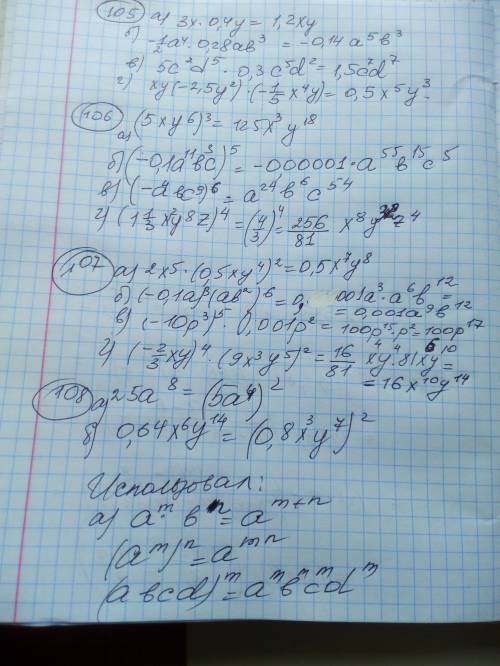 105 а) 3x · 0,4y = 1,2xy
б) -1/2 a⁴ · 0,28ab³ = -0,14a⁵b³
в) 5c²d⁵ · 0,3c⁵d² = 1,5c⁷d⁷
г) xy(-2,5y²) · (-1/5 x⁴y) = 0,5x⁵y³.
106 а) (5xy⁶)³ = 125x³y¹⁸
б) (-0,1a¹¹b³c)⁵ = -0,00001 · a⁵⁵b¹⁵c⁵
в) (-a⁴bc⁹)⁶ = a²⁴b⁶c⁵⁴
г) (1 1/3 x²y⁸z)⁴ = (4/3)⁴ = 256/81 x⁸y³²z⁴
107 а) 2x⁵ · (0,5xy⁴)² = 0,5x⁷y⁸
б) (-0,1a)³(ab²)⁶ = 0, 001a³ · a⁶b¹² =
= 0,001a⁹b¹²
в) (-10p³)⁵ · 0,001p² = 100p¹⁵ · p² = 100p¹⁷
г) (-2/3 xy)⁴ · (9x³y⁵)² = 16/81 x⁴y⁴ · 81x⁶y¹⁰ =
= 16x¹⁰y¹⁴
108 а) 25a⁸ = (5a⁴)²
б) 0,64x⁶y¹⁴ = (0,8x³y⁷)²
Использовал:
а) aᵐ · bⁿ = aᵐ⁺ⁿ
(aᵐ)ⁿ = aᵐⁿ
(abcd)ᵐ = aᵐbᵐcᵐdᵐ